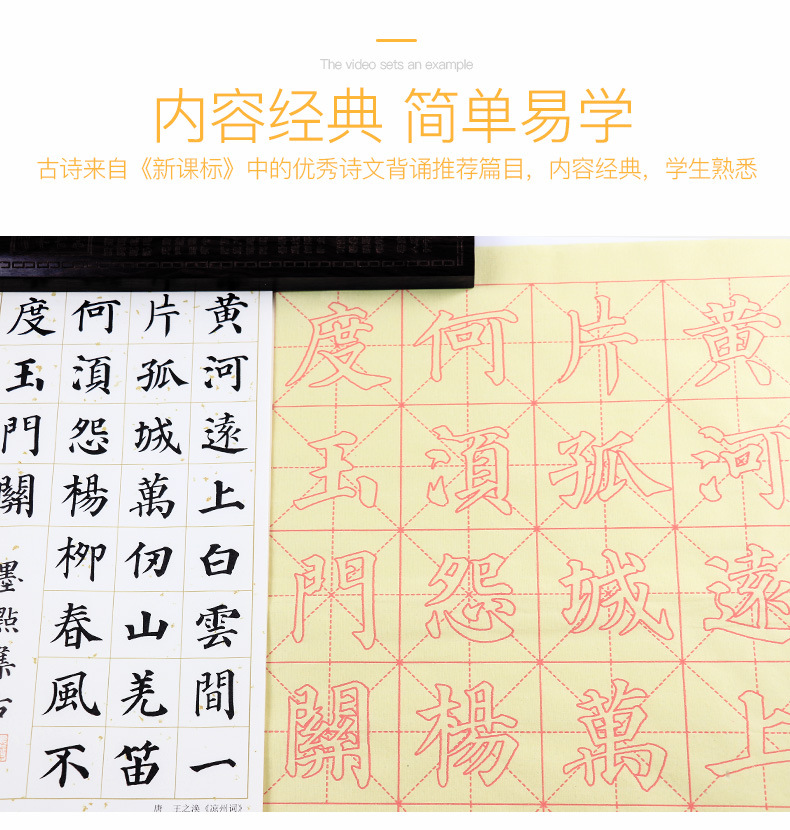 The video sets an example
内容经典 简单易学
古诗来自《新课标》中的优秀诗文背诵推荐篇目，内容经典，学生熟悉
黄河遠上白雲間一
片孤城萬仞山羌笛
何湏怨楊栁春風不
度玉門關
墨點集古
唐 王之涣《凉州词》
黄河遠上
片孤城萬
何湏怨楊
度玉門關